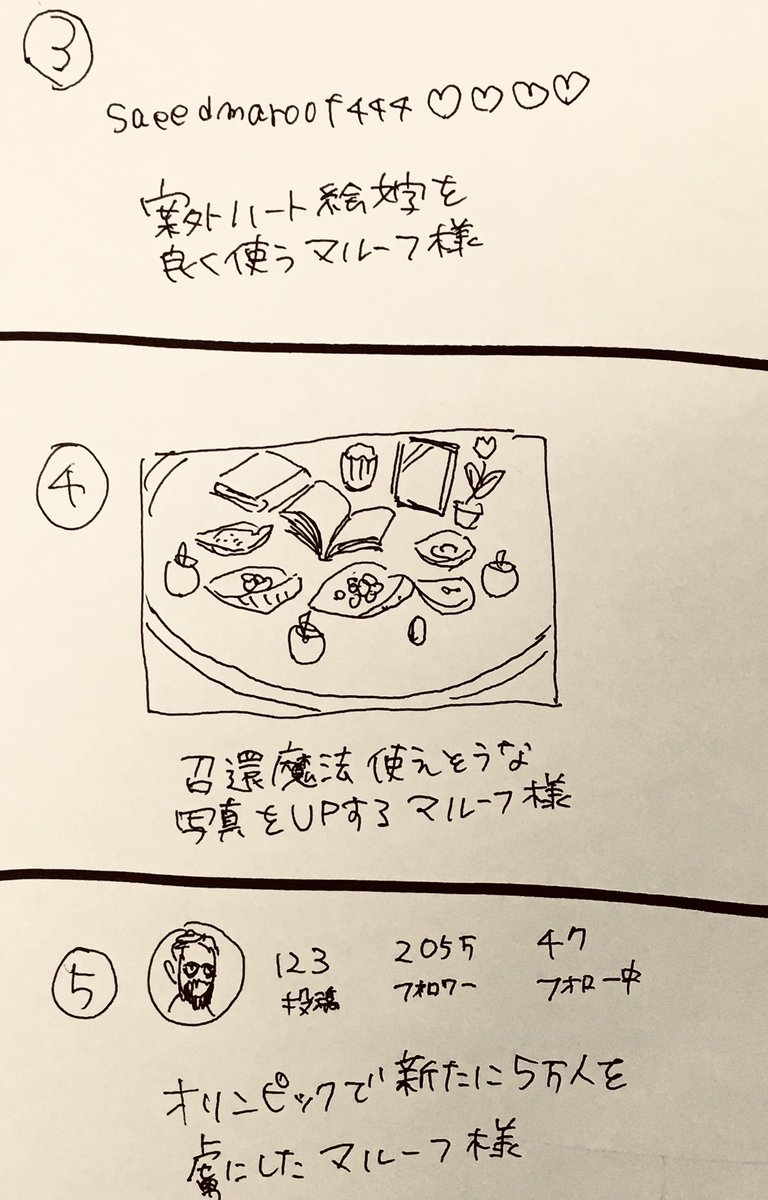 ③
saeedmaroof444♡♡♡♡
案外ハート絵文字を
良く使うマルーフ様
④
召還魔法使えそうな
写真をUPするマルーフ様
⑤
123 205万 47
投稿 フォロワー フォロー中
オリンピックで新たに5万人を
虜にしたマルーフ様